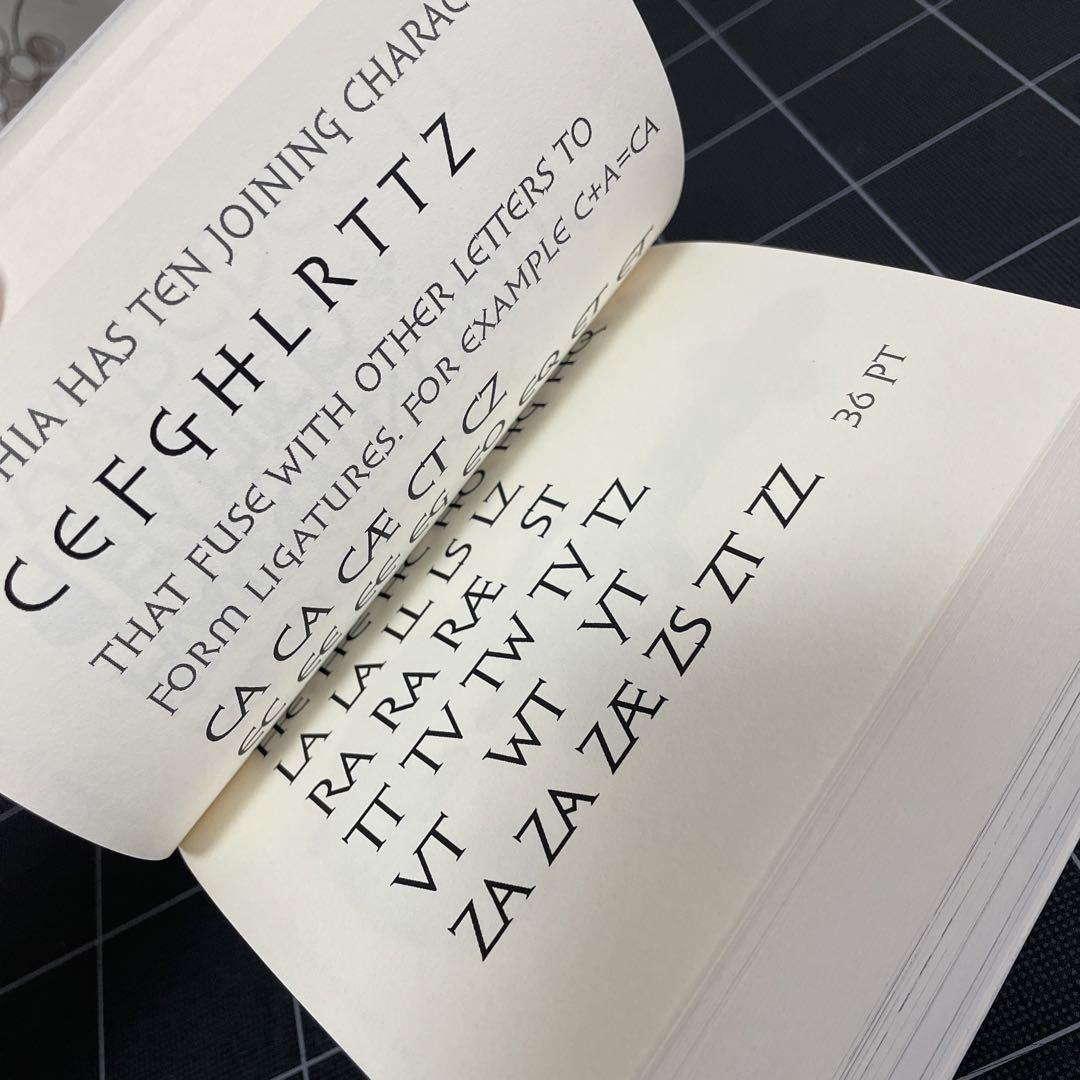 HIA HAS TEN JOINING CHARAC
C E F G H L R T T Z
THAT FUSE WITH OTHER LETTERS TO
FORM LIGATURES. FOR EXAMPLE C+A=CA
CA CA CÆ CT CZ
LA LA LL LS LZ
RA RA RÆ ST
TT TV TW TY TZ
VT WT YT
ZA ZA ZÆ ZS ZT ZZ
36 PT